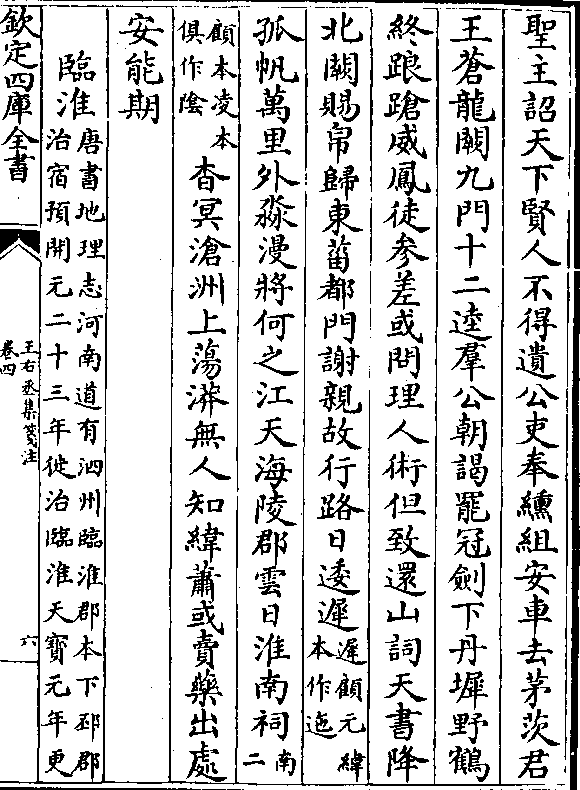 聖主詔天下賢人不得遺公吏奉纁組安車去茅茨君
王蒼龍闕九門十二逵羣公朝謁罷冠劍下丹墀野鶴
終踉蹌威鳳徒參差或問理人術但致還山詞天書降
北闕賜帛歸東菑都門謝親故行路日逶遲遲顧元緯本作迤
孤帆萬里外淼漫將何之江天海陵郡雲日淮南祠南二
顧本凌本俱作陰杳冥滄洲上蕩漭無人知緯蕭或賣藥出處
安能期
臨淮唐書地理志河南道有泗州臨淮郡本下邳郡
治宿預開元二十三年徙治臨淮天寶元年更
欽定四庫全書
王右丞集箋注
卷四
六